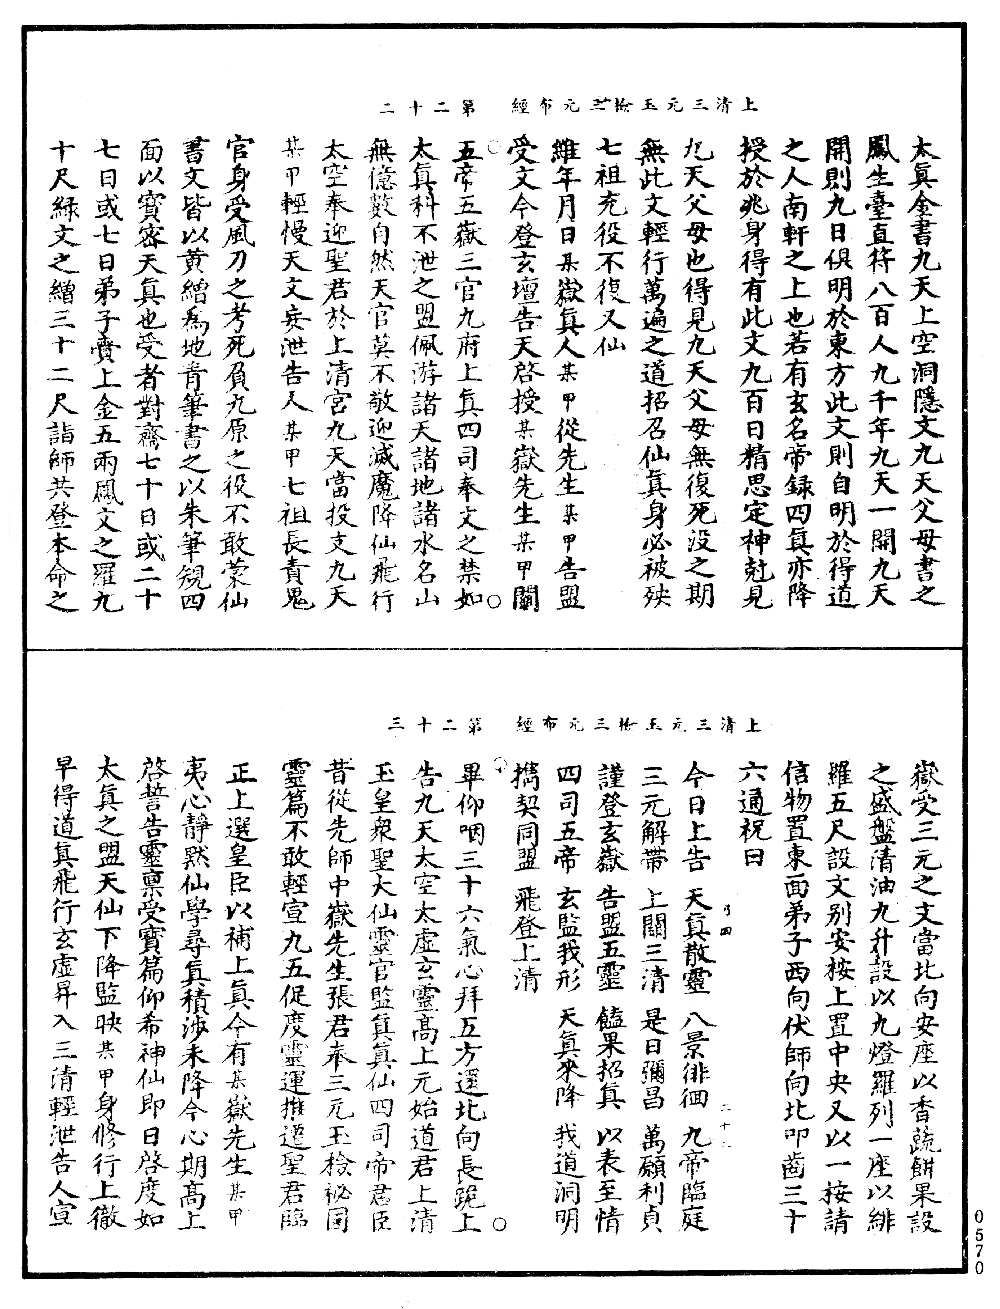 上清三元玉檢三元布經　第二十二
太眞金書九天上空洞隱文九天父母書之
鳳生臺直符八百人九千年九天一開九天
開則九日俱明於東方此文則自明於得道
之人南軒之上也若有玄名帝録四眞亦降
授於兆身得有此文九百日精思定神尅見
九天父母也得見九天父母無復死没之期
無此文輕行萬遍之道招召仙眞身必被殃
七祖充役不復又仙
維年月日某嶽眞人某甲從先生某甲告盟
受文今登玄壇告天啓授某嶽先生某甲關
五帝五嶽三官九府上眞四司奉文之禁如
太眞科不泄之盟佩游諸天諸地諸水名山
無億數自然天官莫不敬迎滅魔降仙飛行
太空奉迎聖君於上清宮九天當投支九天
某甲輕慢天文妄泄告人某甲七祖長責鬼
官身受風刀之考死負九原之役不敢蒙仙
書文皆以黄繒爲地青筆書之以朱筆規四
面以寶密天眞也受者對齋七十日或二十
七日或七日弟子賫上金五兩鳳文之羅九
十尺緑文之繒三十二尺詣師共登本命之
上清三元玉檢三元布經　第二十三
嶽受三元之文當北向安座以香蔬餅果設
之盛盤清油九升設以九燈羅列一座以緋
羅五尺設文别安按上置中央又以一按請
信物置東面弟子西向伏師向北叩齒三十
六通祝曰
今日上告　天眞散靈　八景徘徊　九帝臨庭
三元解帶　上關三清　是日彌昌　萬願利貞
謹登玄嶽　告盟五靈　饁果招眞　以表至情
四司五帝　玄監我形　天眞來降　我道洞明
携契同盟　飛登上清
畢仰咽三十六氣心拜五方還北向長跪上
告九天太空太虚玄靈高上元始道君上清
玉皇衆聖大仙靈官監眞眞仙四司帝君臣
昔從先師中嶽先生張君奉三元玉檢祕固
靈篇不敢輕宣九五促度靈運推遷聖君臨
正上選皇臣以補上眞今有某嶽先生某甲
夷心靜黙仙學尋眞積涉未降今心期高上
啓誓告靈禀受寶篇仰希神仙即日啓度如
太眞之盟天仙下降監映某甲身修行上徹
早得道眞飛行玄虚昇入三清輕泄告人宣
0570